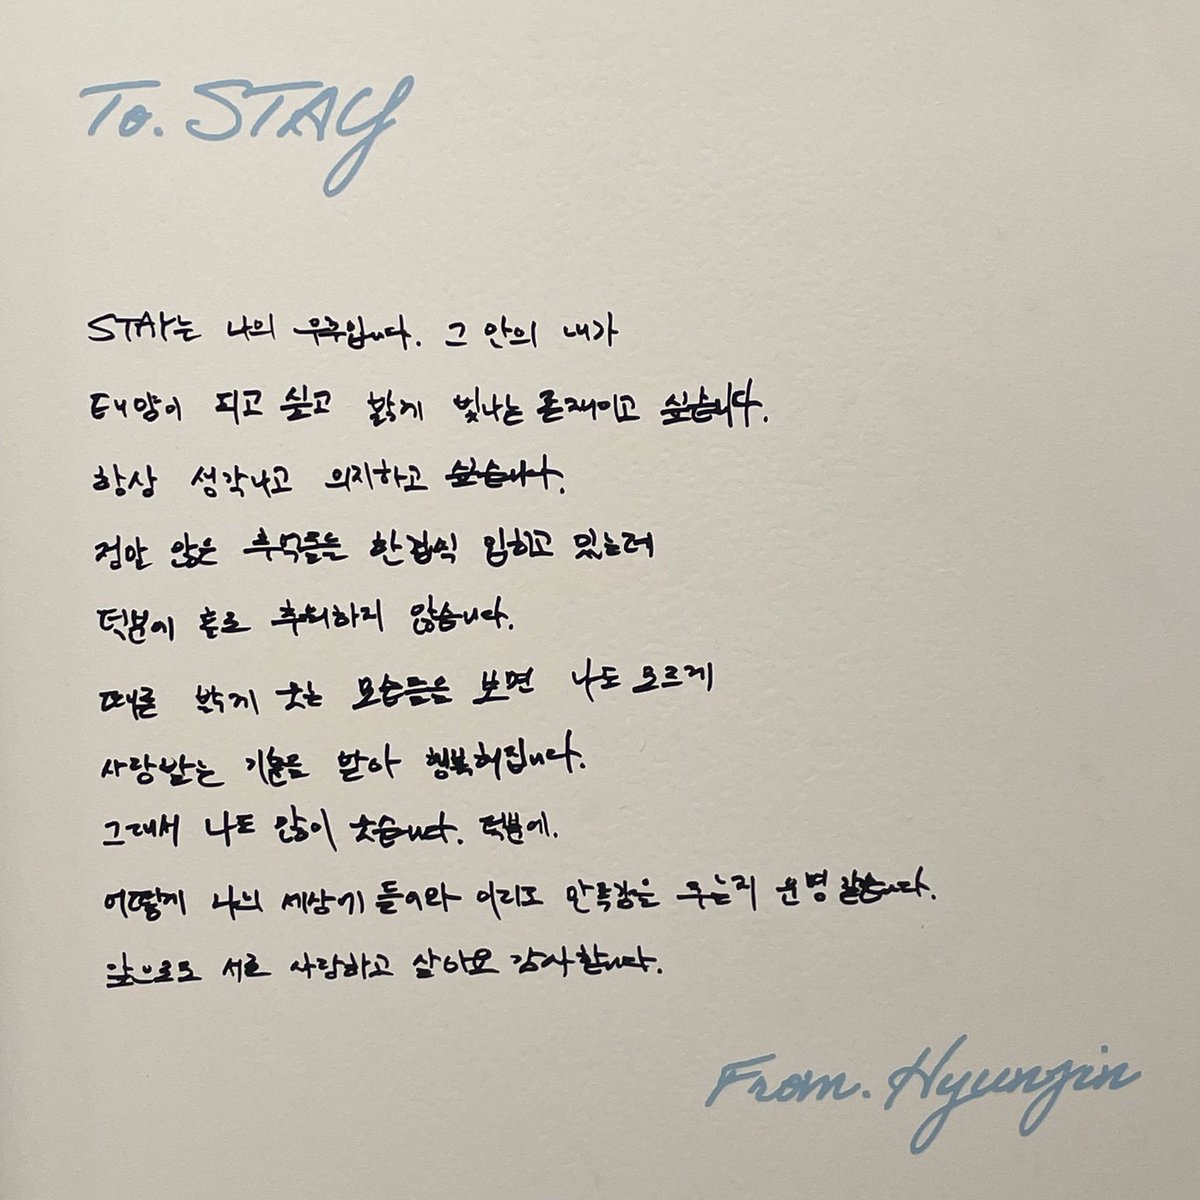 To. STAY
STAY는 나의 우주입니다. 그 안의 내가
태양이 되고 싶고 밝게 빛나는 존재이고 싶습니다.
항상 생각나고 의지하고 싶습니다.
정말 많은 추억들을 한겹씩 입히고 있는데
덕분에 홀로 추워하지 않습니다.
때론 밝게 웃는 모습들을 보면 나도 모르게
사랑받는 기분을 받아 행복해집니다.
그래서 나도 많이 웃습니다. 덕분에.
어떻게 나의 세상에 들어와 이리도 만족감을 주는지 운명 같습니다.
앞으로도 서로 사랑하고 살아요 감사합니다.
From. Hyunjin